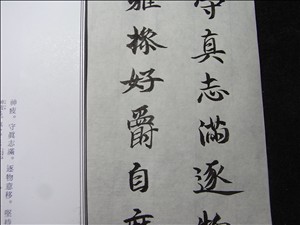 守真志滿逐物
雅操好爵自
神疲。守眞志滿。逐物意移。堅持